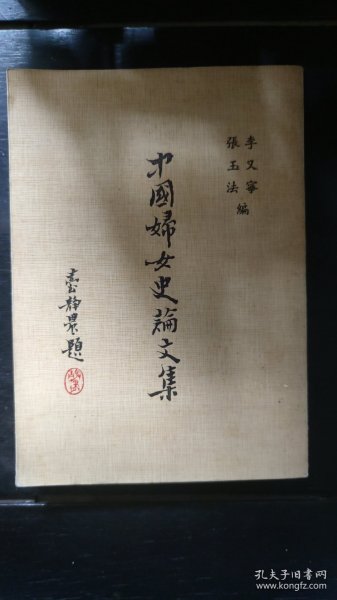 李又寧
張玉法
編
中國婦女史論文集
臺靜農題
孔夫子旧书网
www.kongfz.com